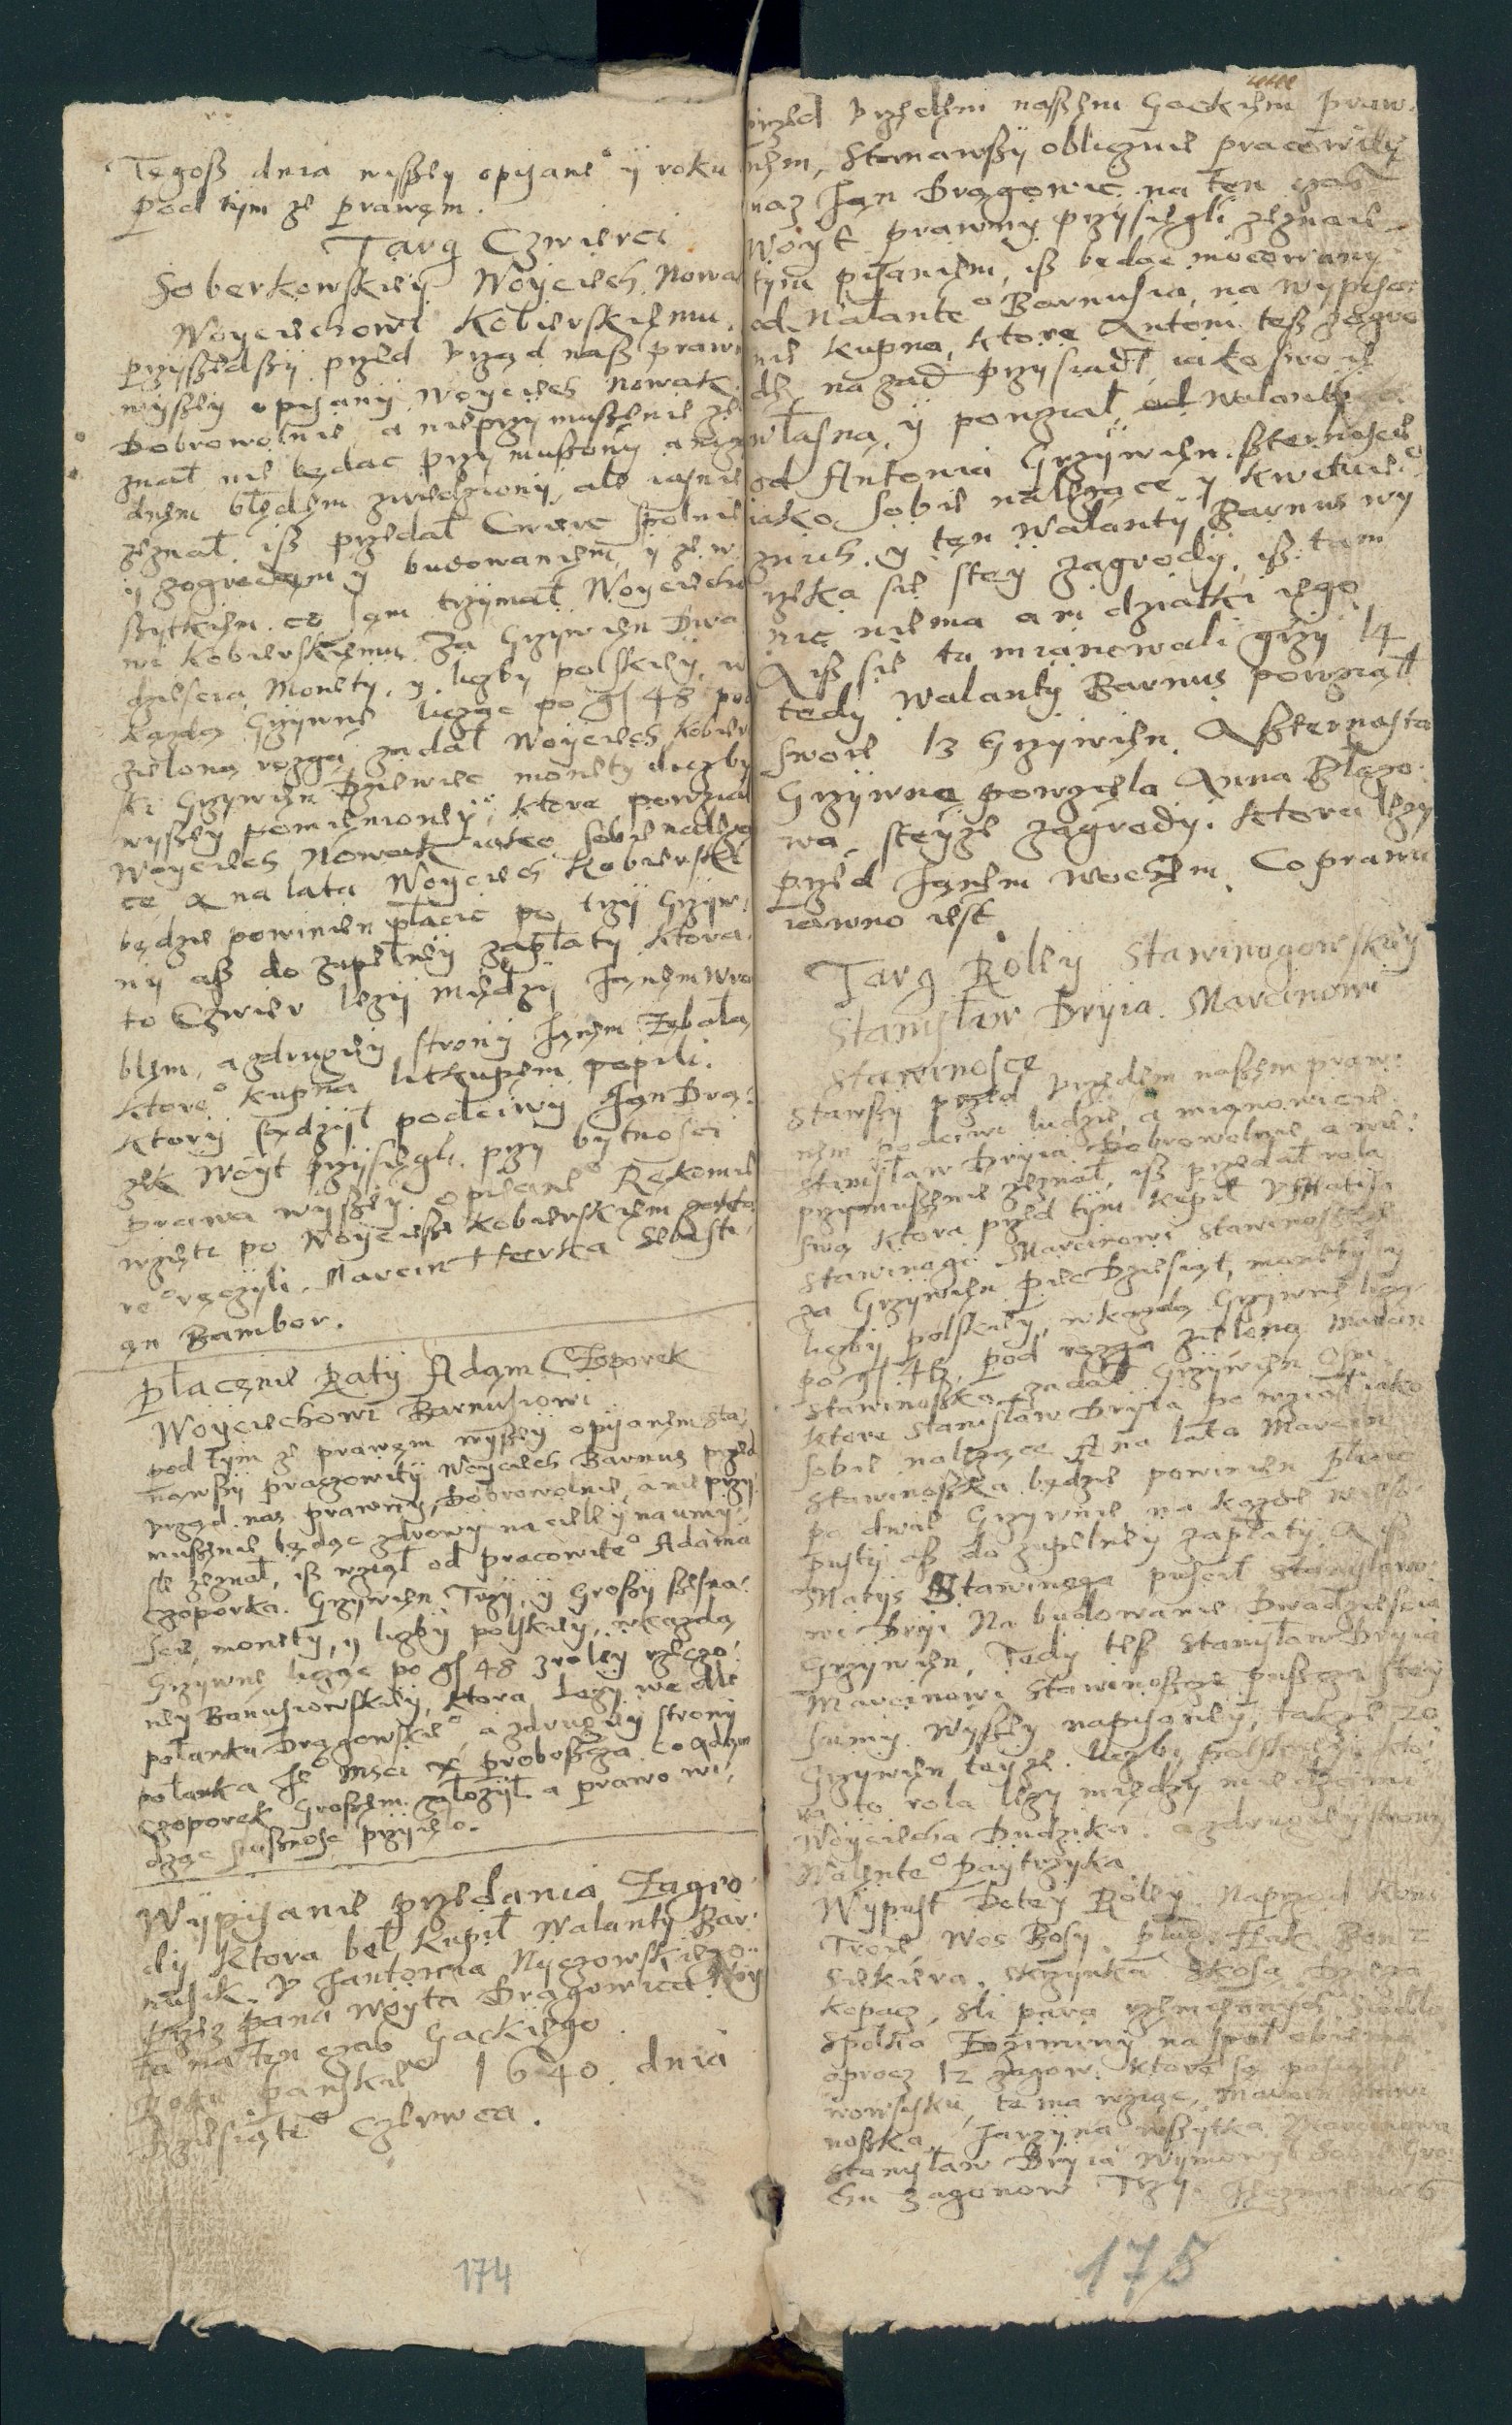 Tegosz dnia wyszey opisane° ÿ roku
pod tym ze prawem.
Targ Czwierci
Soberkowskieÿ Woÿciech Nowa
Woÿciechowi Kobierskiemu.
przyszedszÿ przed urząd nasz praw
wyszeÿ opisanÿ Woÿciech Nowak
Dobrowolnie a nieprzymuszenie ze
znał nie będac przymuszonÿ ani za
dnem błędem zwiedzionÿ, ale iasnie
zeznał isz przedał Cwierc spolnie
ÿ zogrodem y budowaniem y ze w
szytkiem co sam trzymał Woyciecho
wi Kobierskiemu za Grzywien Dwa
dziescia Monety, y liczby polskieÿ, w
każdą Grzywnę licząc po gſ 48 pod
zieloną rozgą zadał Woyciech Kobier
ski Grzywien Dziewiec monety liczby
wyszeÿ pomienioneÿ, ktore powziął
Woyciech Nowak iako sobie należą
ce A na lata Woyciech Kobierski
będzie powinien płacic po trzÿ Grzyw:
nÿ asz do zupełneÿ zapłatÿ ktora
to Czwierc lezÿ międzÿ Janem Wro
blem, a zdrugieÿ stronÿ Janem Zębalą
ktore° kupna litkupem popili.
ktorÿ sądzÿł podciwÿ Jan Drą:
zek Woyt przÿsięglÿ. przy bytnosci
prawa wyszeÿ opisane° Rękomie
wzięte po Woyciechu Kobierskiem
re° ręczÿli. Marcin Sebasti
an Bambor.
Płacenie Ratÿ Adam Czoporek
Woÿciechowi Barnusiowi
pod tym ze prawem wyszeÿ opisanem sta
nąwszÿ pracowitÿ Woyciech Barnus przed
urząd nasz prawnÿ, Dobrowolnie, a nieprzy
muszenie będąc zdrowÿ na ciele ÿ na umÿ
sle zeznał, isz wziął od pracowite° Adama
Czoporka. Grzywien Trzÿ, ÿ Groszÿ szesna:
scie, monety, y liczbÿ polskieÿ, w każdą
Grzywnę licząc po gſ 48 z roleÿ rzeczo:
neÿ Barnusiowskieÿ, ktora lezÿ wedle
połanku Drągowskie°, a zdrugieÿ stronÿ
połanka Je° Msci X proboszcza. Co Adam
Czoporek Groszem założÿł. a prawo wi:
dząc słusznosc przÿięło.
Wÿpisanie przedania Zagro
dÿ Ktora beł kupił Walantÿ Bar:
nusik. U Jantonia Nÿczowskiego
przez pana Woÿta Drągowica Woÿ
ta na ten czas Gackiego
Roku panskie° 1640. dnia
Dziesiąte° Czerwca.
174
przed Urzędem naszem Gackiem praw:
nem, Stanawszÿ oblicznie pracowitÿ
nasz Jan Drągowic na ten czas
Woÿt prawnÿ przÿsięglÿ zeznaie
tÿm pisaniem, isz będąc mocowanÿ
od Walante° Barnusia, na wypisa:
nie kupna, ktore Antoni tesz zagro
dę nazad przysiadł, iako swoie
własną, ÿ powziął od Walante
od Antonia Grzywien szternascie
iako sobie należące, y kwituie°
znich. y ten Walantÿ Barnus wy
rzeka sie steÿ zagrodÿ, isz tam
nic niema ani dziatki iego
A isz sie tu mianowali grzy 14
tedÿ Walantÿ Barnus powziął
swoie 13 Grzywien. A szternasta
Grzywna powzięla Anna Blazo:
wa, steÿze zagrodÿ. ktora lezÿ
przed Janem Wochem. Co prawu
iawno iest.
Targ Roleÿ Stawinogowskieÿ
Stanisław Drÿia. Marcinowi
Stawinosce
Stawszÿ przed Urzędem naszem praw:
nem podciwi ludzie, a mianowicie
Stanisław Dryia Dobrowolnie a nie:
przymuszenie zeznał, isz przedał rola
swą ktora przed tÿm kupił U Matisa
Stawinogi Marcinowi Stawinoszce
za Grzywien piecDziesiąt, monetÿ y
liczbÿ polskieÿ, w każdą Grzywnę licząc
po gſ 48. pod rozgą zieloną Marcin
Stawinoszka zadał Grzÿwien Osm
ktore Stanisław Dryia powziął iako
sobie należące A na lata Marcin
Stawinoszka będzie powinien płacic
po dwie Grzywnie na kazde Mieso:
pustÿ asz do zupełneÿ zapłatÿ. A isz
Matÿs Stawinoga puscił Stanisławo:
wi Dryi Na budowanie Dwadziescia
Grzywien, Tedy tesz Stanisław Dryia
Marcinowi Stawinoszce puszcza steÿ
sumÿ wyszeÿ napisaneÿ, takze 20
Grzywien teÿze liczbÿ polskieÿ. kto:
ra to rola lezy międzÿ miedzami
Woÿciecha Dudzika. a zdrugieÿ stronÿ
Walente° Paÿtrzÿka
Wÿpust Do teÿ Roleÿ. Naprzod koni
Troie, Wos Bosy. pług. Hak. Bron 2
Siekiera. skrzynka Kosa Dzieza
kopacz, sli para rzemiennych Siodło
Spolko Ozyminÿ na społ obiema
oprocz 12 zagow. ktore są posiane
nowsisku, te ma wziąc, Marcin Stawi
noszka. Jarzÿna wszytka Marcinowa
Stanisław Dryia wymowÿł sobie Gro
chu zagonow Trzÿ. Jęczmienia 6
175